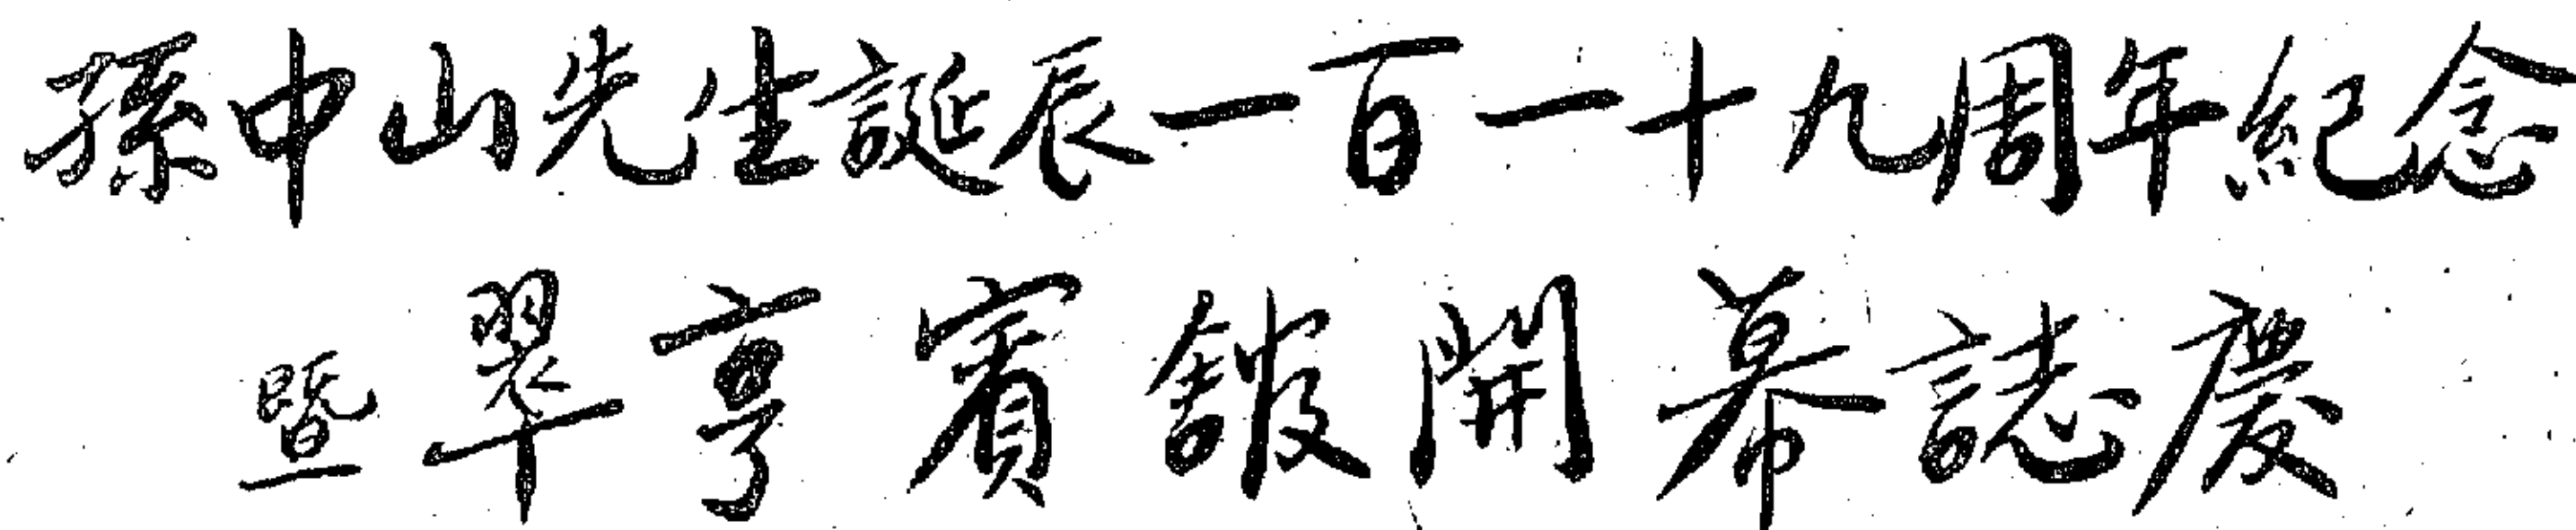 孫中山先生誕辰一百一十九周年紀念
暨翠亨賓館開幕誌慶